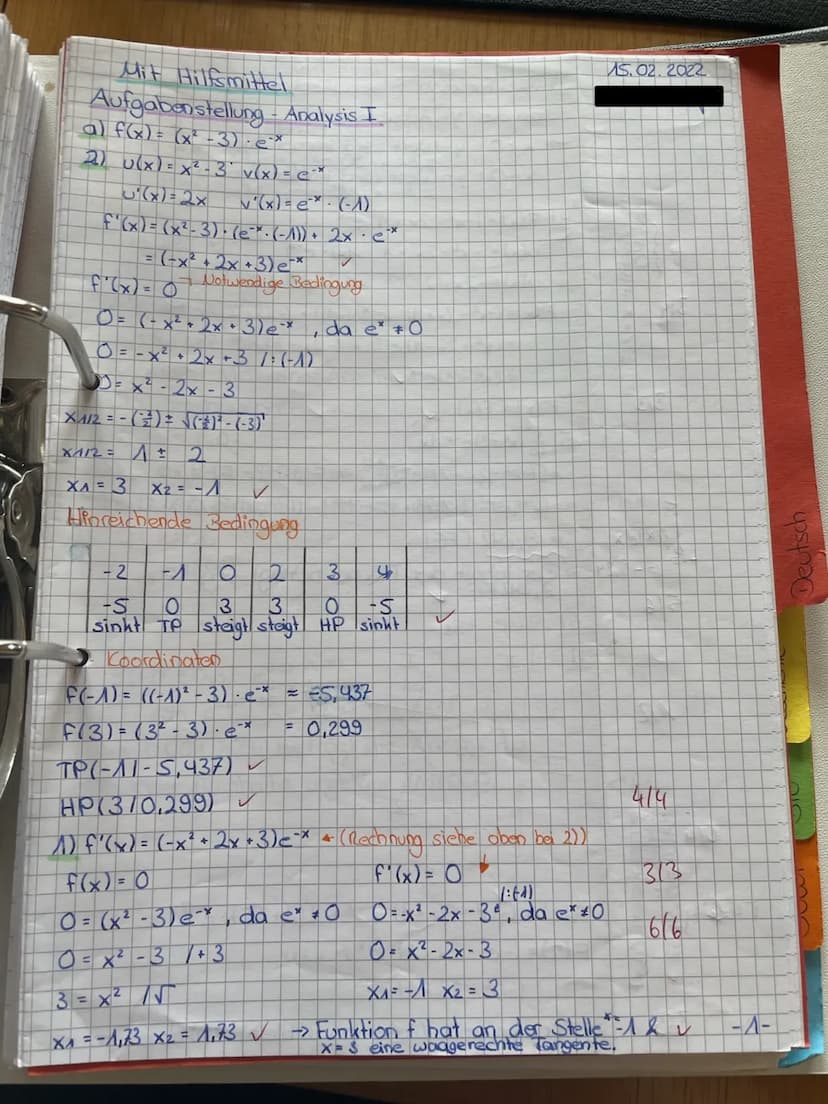 Mit Hilfsmittel
15.02.2022
Aufgabenstellung - Analysis I
a) f(x) = (x² - 3) · e⁻ˣ
2) u(x) = x² - 3 v(x) = e⁻ˣ
u'(x) = 2x v'(x) = e⁻ˣ · (-1)
f'(x) = (x² - 3) · (e⁻ˣ · (-1)) + 2x · e⁻ˣ
= (-x² + 2x + 3)e⁻ˣ ✓
f'(x) = 0 → Notwendige Bedingung
0 = (-x² + 2x + 3)e⁻ˣ , da eˣ ≠ 0
0 = -x² + 2x + 3 /:(-1)
0 = x² - 2x - 3
x1/2 = -(-2/2) ± √((-2/2)² - (-3))
x1/2 = 1 ± 2
x1 = 3 x2 = -1 ✓
Hinreichende Bedingung
-2 -1 0 2 3 4
-5 0 3 3 0 -5
sinkt TP steigt steigt HP sinkt ✓
Koordinaten
f(-1) = ((-1)² - 3) · e⁻ˣ ≈ -5,437
f(3) = (3² - 3) · e⁻ˣ = 0,299
TP(-1/-5,437) ✓
HP(3/0,299) ✓
4/4
1) f'(x) = (-x² + 2x + 3)e⁻ˣ ← (Rechnung siehe oben bei 2))
f(x) = 0 f'(x) = 0
3/3
/:(-1)
0 = (x² - 3)e⁻ˣ , da eˣ ≠ 0 0 = -x² - 2x - 3 , da eˣ ≠ 0
6/6
0 = x² - 3 /+3 0 = x² - 2x - 3
3 = x² /√ x1 = -1 x2 = 3
x1 = -1,73 x2 = 1,73 ✓ → Funktion f hat an der Stelle x=-1 & ✓ -1-
x = 3 eine waagerechte Tangente.
Deutsch